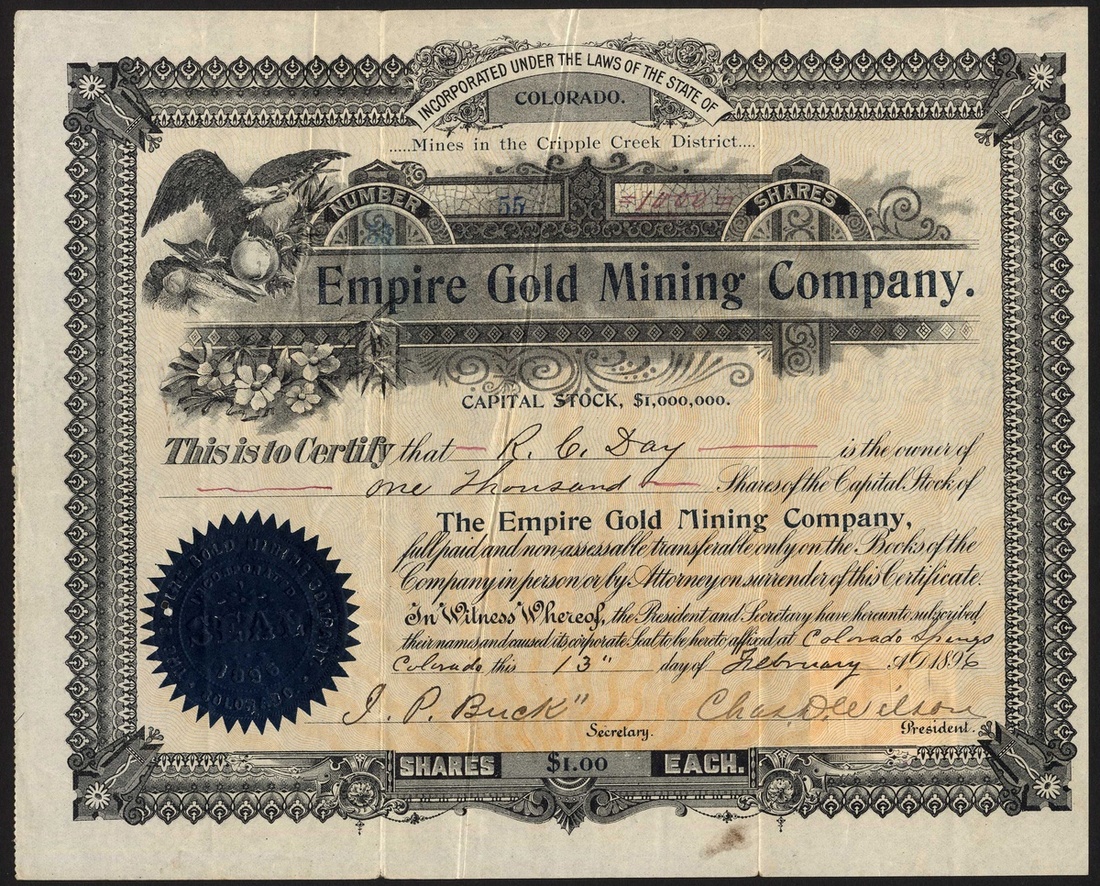 INCORPORATED UNDER THE LAWS OF THE STATE OF
COLORADO.
.....Mines in the Cripple Creek District....
NUMBER 55 =1000= SHARES
Empire Gold Mining Company.
CAPITAL STOCK, $1,000,000.
This is to Certify that R. C. Day is the owner of
One Thousand Shares of the Capital Stock of
The Empire Gold Mining Company,
full paid and non-assessable transferable only on the Books of the
Company in person, or by Attorney on surrender of this Certificate.
In Witness Whereof, the President and Secretary have hereunto subscribed
their names and caused its corporate Seal to be hereto affixed at Colorado Springs
Colorado this 13" day of February A.D. 1896
THE EMPIRE GOLD MINING COMPANY
INCORPORATED
SEAL
COLORADO
J. P. Buck" Chas. D. Wilson
Secretary. President.
SHARES $1.00 EACH.